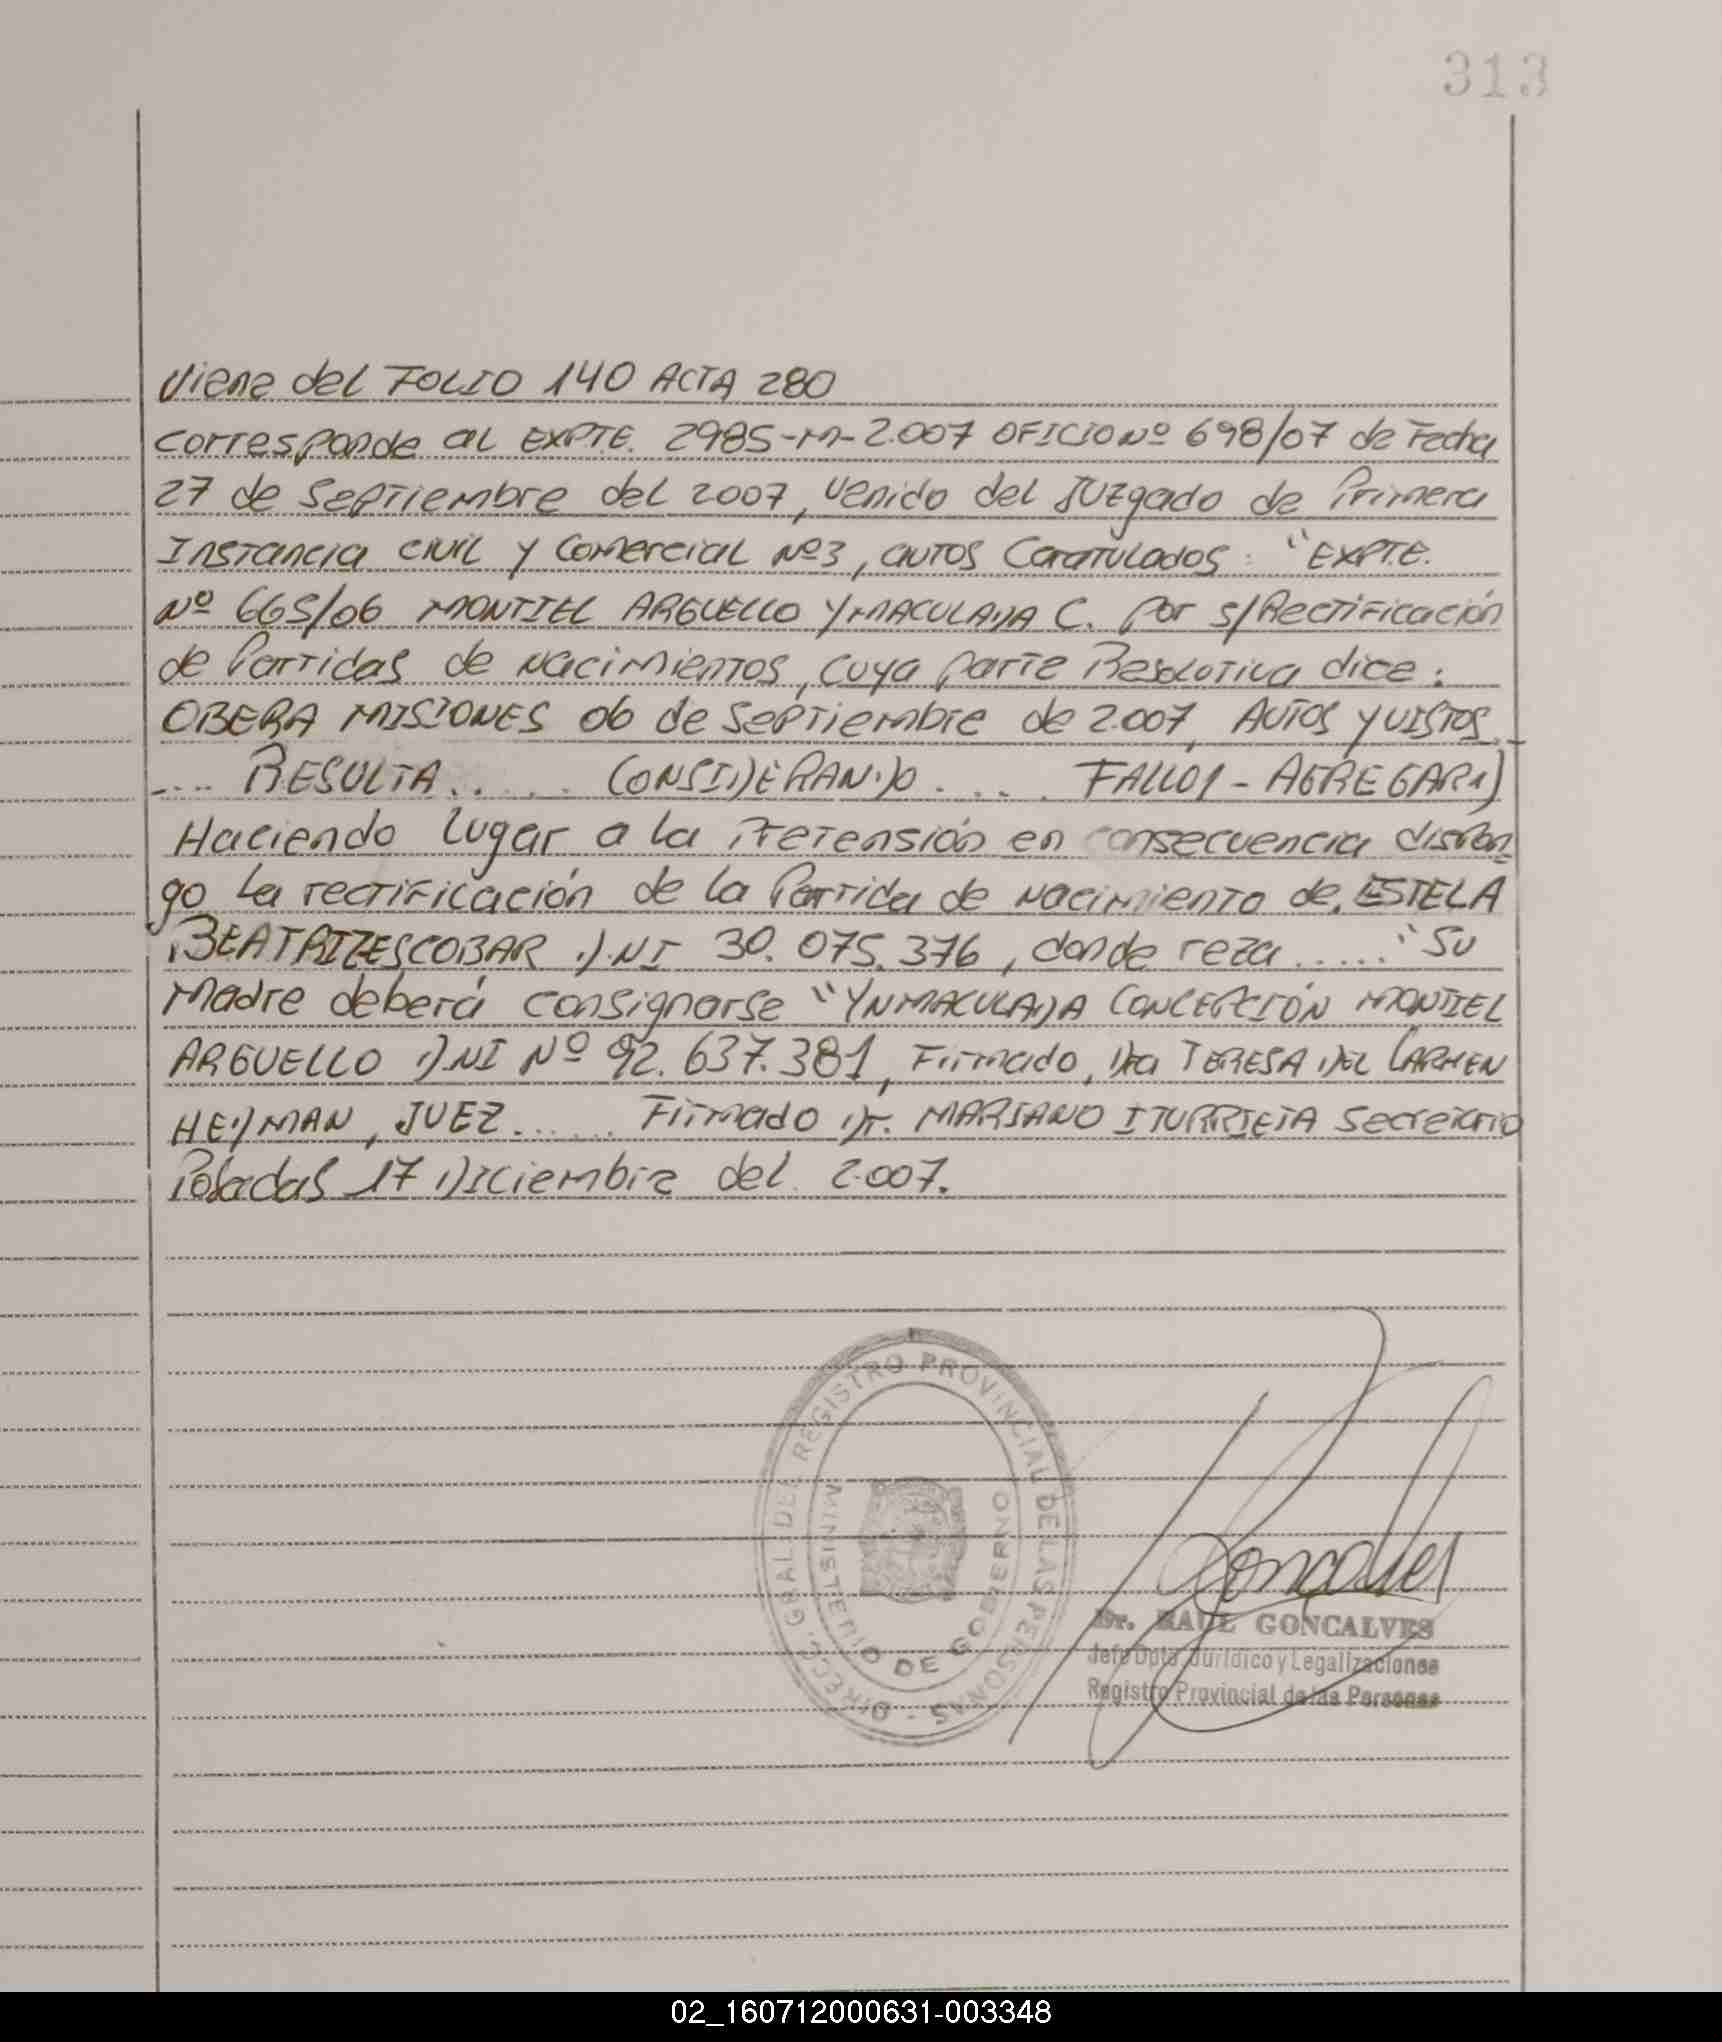 313
Viene del FOLIO 140 ACTA 280
corresponde al EXPTE. 2985-M-2.007 OFICIO Nº 698/07 de Fecha
27 de Septiembre del 2007, venido del Juzgado de Primera
Instancia civil y Comercial Nº3, autos Caratulados: "EXPTE.
Nº 665/06 MONTIEL ARGUELLO YMACULADA C. por s/Rectificación
de Partidas de Nacimientos, cuya parte Resolutiva dice:
OBERA MISIONES 06 de Septiembre de 2.007, AUTOS Y VISTOS..
.... RESULTA..... CONSIDERANDO.... FALLO 1- AGREGAR 1)
Haciendo lugar a la Pretensión en consecuencia dispon-
go La rectificación de la Partida de Nacimiento de, ESTELA
BEATRIZ ESCOBAR D.NI 30.075.376, donde reza ..... "Su
Madre deberá consignarse "YNMACULADA CONCEPCIÓN MONTIEL
ARGUELLO D.NI Nº 92.637.381, Firmado, Dra TERESA DEL CARMEN
HEDMAN, JUEZ...... Firmado Dr. MARIANO ITURRIETA Secretario
Posadas 17 Diciembre del 2.007.
DIRECC. GRAL. DEL REGISTRO PROVINCIAL DE LAS PERSONAS -
MINISTERIO DE GOBIERNO
Goncalves
Dr. RAUL GONCALVES
Jefe Dpto. Jurídico y Legalizaciones
Registro Provincial de las Personas
02_160712000631-003348